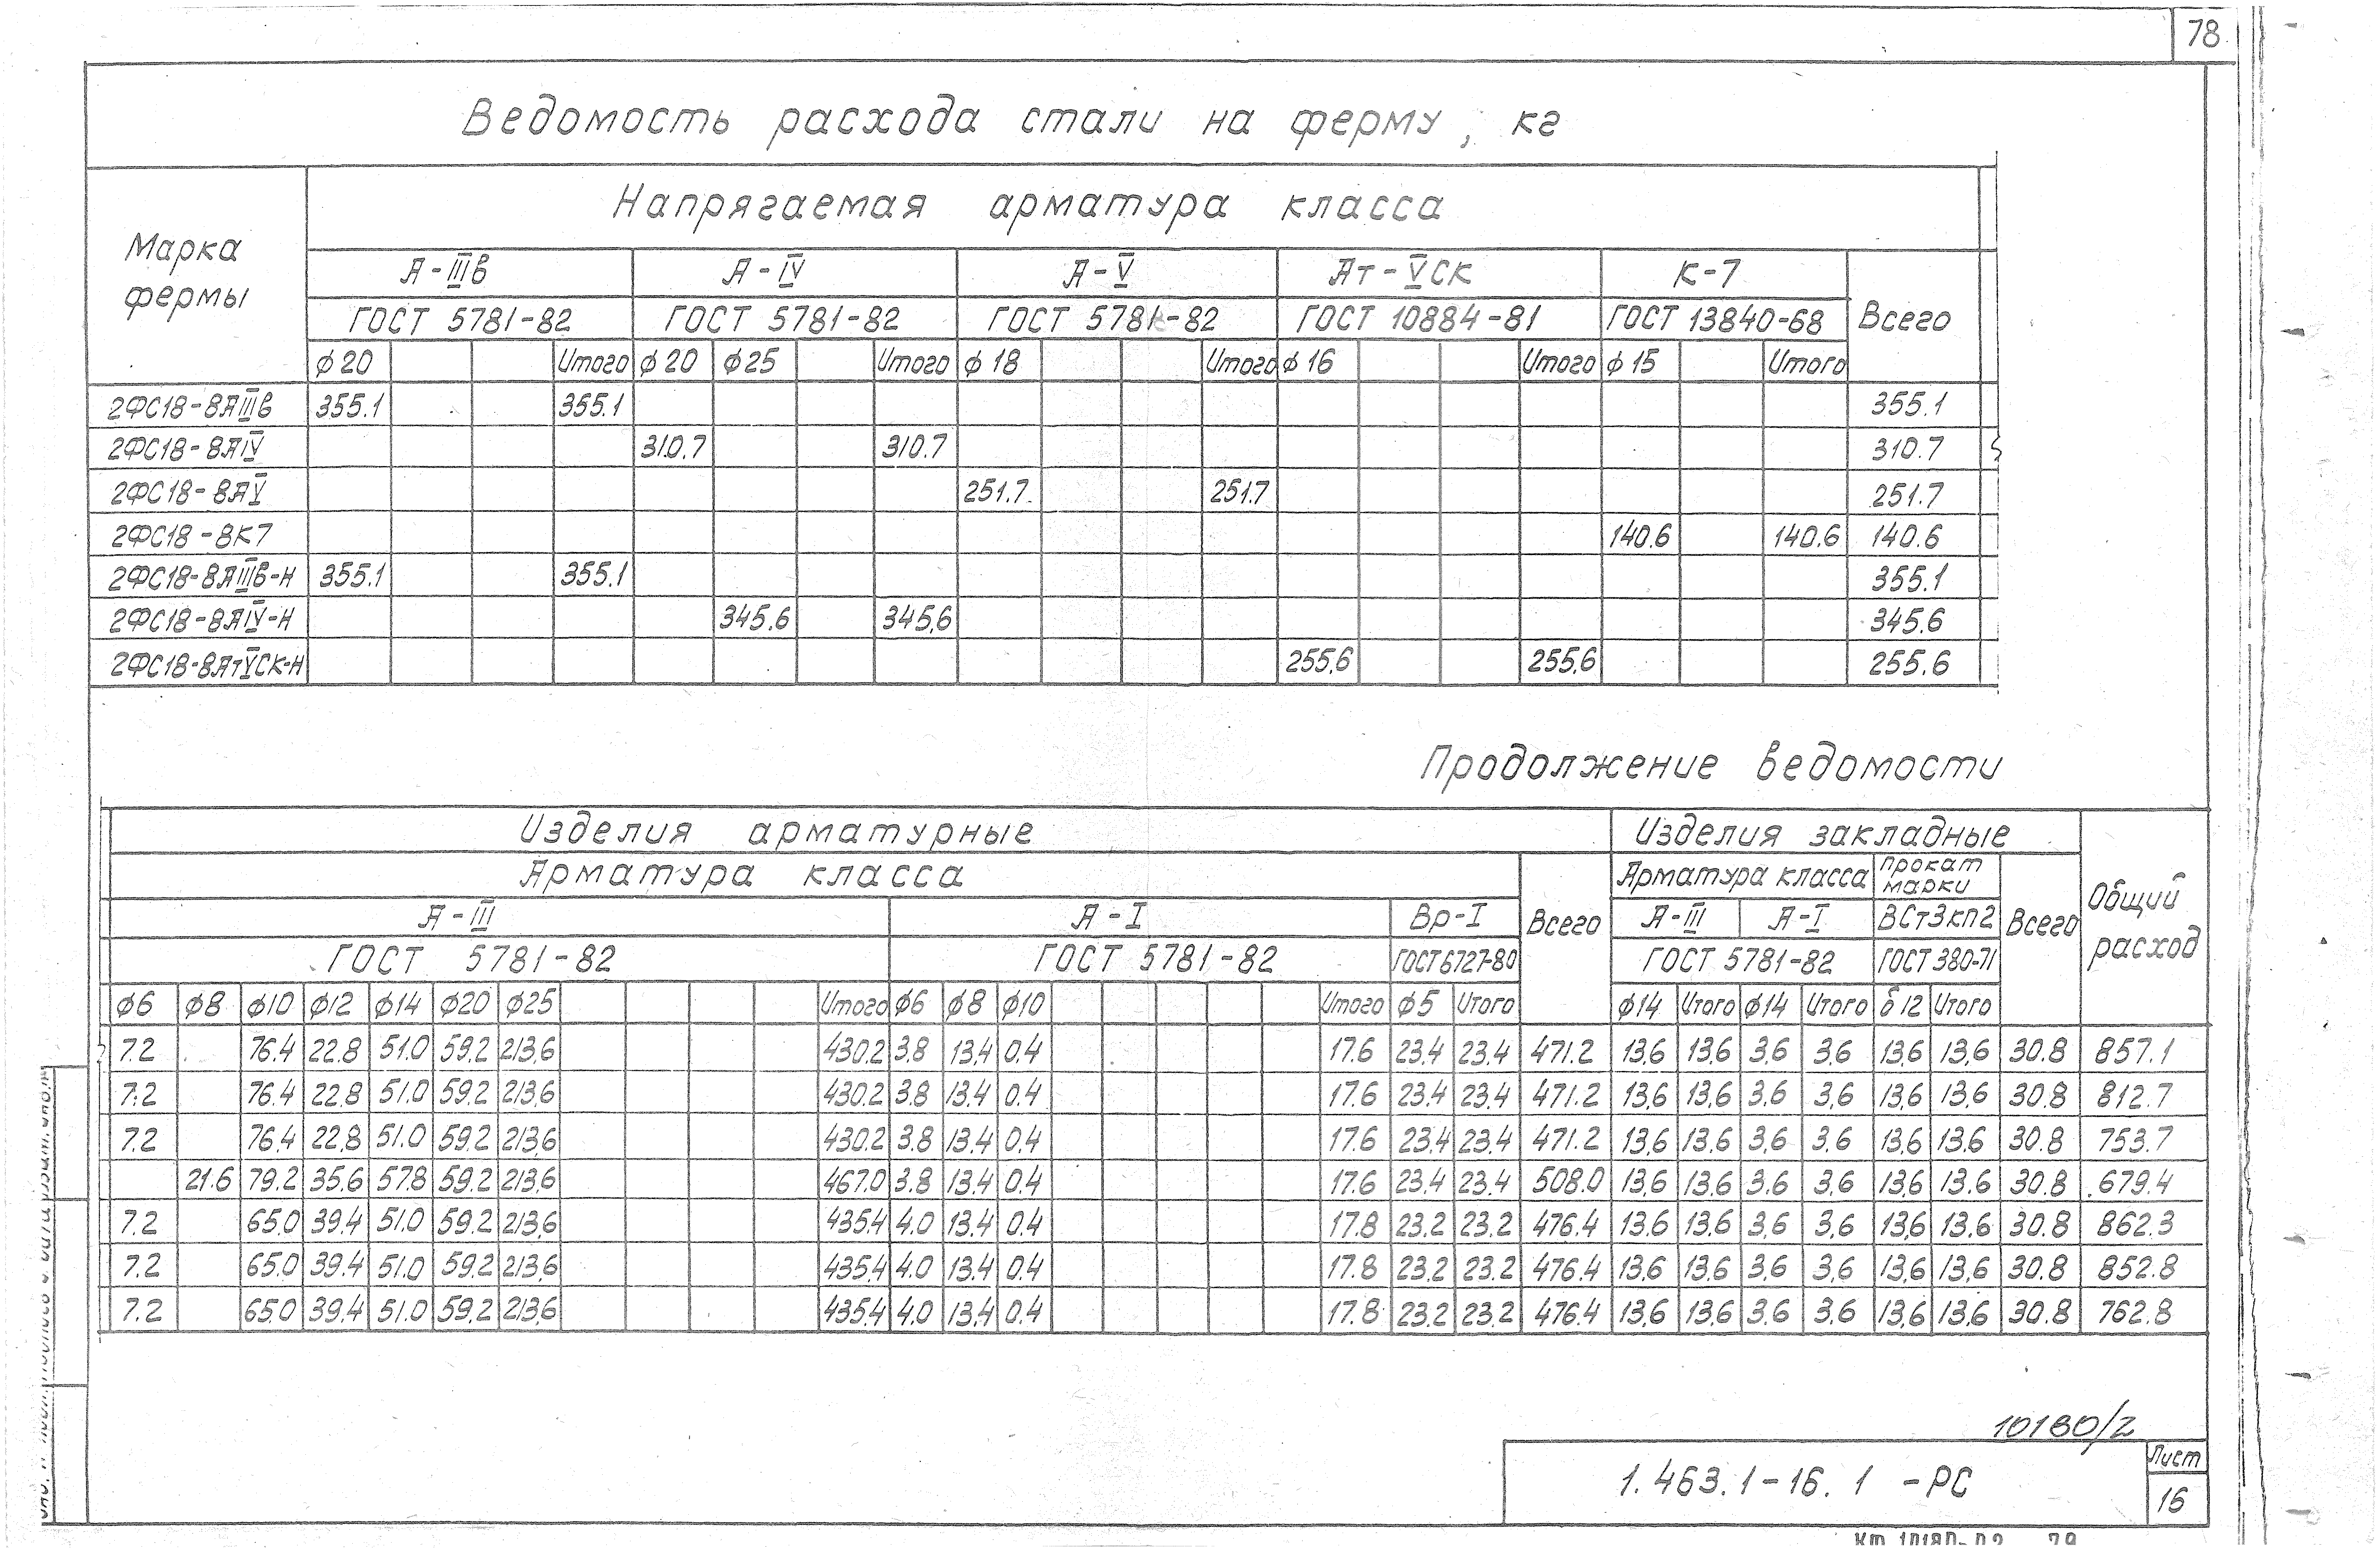 78
Ведомость расхода стали на ферму, кг
Марка фермы | Напрягаемая арматура класса
А-IIIв | А-IV | А-V | Ат-VСК | К-7 | Всего
ГОСТ 5781-82 | ГОСТ 5781-82 | ГОСТ 5781-82 | ГОСТ 10884-81 | ГОСТ 13840-68
ϕ20 | Итого | ϕ20 | ϕ25 | Итого | ϕ18 | Итого | ϕ16 | Итого | ϕ15 | Итого
2ФС18-8АIIIв | 355.1 | 355.1 | 355.1
2ФС18-8АIV | 310.7 | 310.7 | 310.7
2ФС18-8АV | 251.7 | 251.7 | 251.7
2ФС18-8К7 | 140.6 | 140.6 | 140.6
2ФС18-8АIIIв-Н | 355.1 | 355.1 | 355.1
2ФС18-8АIV-Н | 345.6 | 345.6 | 345.6
2ФС18-8АтVСК-Н | 255.6 | 255.6 | 255.6
Продолжение ведомости
Изделия арматурные | Изделия закладные | Общий расход
Арматура класса | Всего | Арматура класса | Прокат марки | Всего
А-III | А-I | Вр-I | А-III | А-I | ВСт3кп2
ГОСТ 5781-82 | ГОСТ 5781-82 | ГОСТ 6727-80 | ГОСТ 5781-82 | ГОСТ 380-71
ϕ6 | ϕ8 | ϕ10 | ϕ12 | ϕ14 | ϕ20 | ϕ25 | Итого | ϕ6 | ϕ8 | ϕ10 | Итого | ϕ5 | Итого | ϕ14 | Итого | ϕ14 | Итого | δ12 | Итого
7.2 | 76.4 | 22.8 | 51.0 | 59.2 | 213.6 | 430.2 | 3.8 | 13.4 | 0.4 | 17.6 | 23.4 | 23.4 | 471.2 | 13.6 | 13.6 | 3.6 | 3.6 | 13.6 | 13.6 | 30.8 | 857.1
7.2 | 76.4 | 22.8 | 51.0 | 59.2 | 213.6 | 430.2 | 3.8 | 13.4 | 0.4 | 17.6 | 23.4 | 23.4 | 471.2 | 13.6 | 13.6 | 3.6 | 3.6 | 13.6 | 13.6 | 30.8 | 812.7
7.2 | 76.4 | 22.8 | 51.0 | 59.2 | 213.6 | 430.2 | 3.8 | 13.4 | 0.4 | 17.6 | 23.4 | 23.4 | 471.2 | 13.6 | 13.6 | 3.6 | 3.6 | 13.6 | 13.6 | 30.8 | 753.7
21.6 | 79.2 | 35.6 | 57.8 | 59.2 | 213.6 | 467.0 | 3.8 | 13.4 | 0.4 | 17.6 | 23.4 | 23.4 | 508.0 | 13.6 | 13.6 | 3.6 | 3.6 | 13.6 | 13.6 | 30.8 | 679.4
7.2 | 65.0 | 39.4 | 51.0 | 59.2 | 213.6 | 435.4 | 4.0 | 13.4 | 0.4 | 17.8 | 23.2 | 23.2 | 476.4 | 13.6 | 13.6 | 3.6 | 3.6 | 13.6 | 13.6 | 30.8 | 862.3
7.2 | 65.0 | 39.4 | 51.0 | 59.2 | 213.6 | 435.4 | 4.0 | 13.4 | 0.4 | 17.8 | 23.2 | 23.2 | 476.4 | 13.6 | 13.6 | 3.6 | 3.6 | 13.6 | 13.6 | 30.8 | 852.8
7.2 | 65.0 | 39.4 | 51.0 | 59.2 | 213.6 | 435.4 | 4.0 | 13.4 | 0.4 | 17.8 | 23.2 | 23.2 | 476.4 | 13.6 | 13.6 | 3.6 | 3.6 | 13.6 | 13.6 | 30.8 | 762.8
10180/2
1.463.1-16.1 -РС
Лист
16